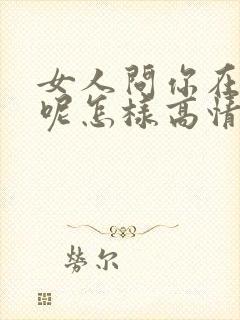 女人問你在
呢怎樣高情
勞尔